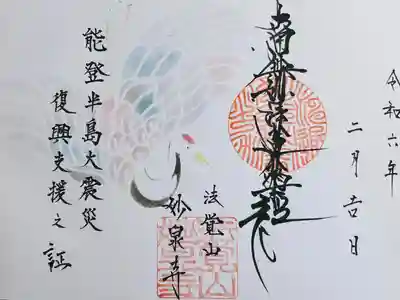 令和六年
二月吉日
南無妙法蓮華経
法覚山
妙泉寺
能登半島大震災
復興支援之証